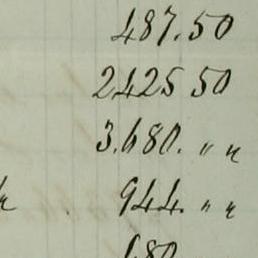 487.50
2425 50
3.680. " "
944. " "
680